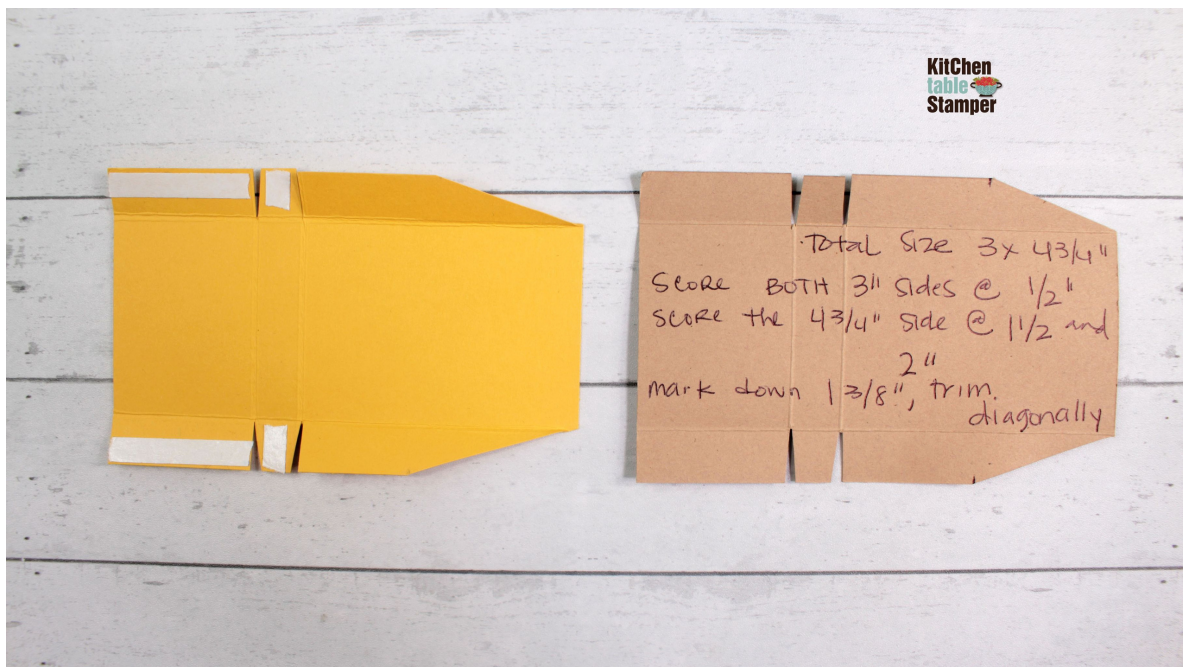 KitChen
table
Stamper
Total Size 3x 4 3/4"
Score BOTH 3" sides @ 1/2"
Score the 4 3/4" side @ 1 1/2 and
2"
mark down 1 3/8", trim.
diagonally